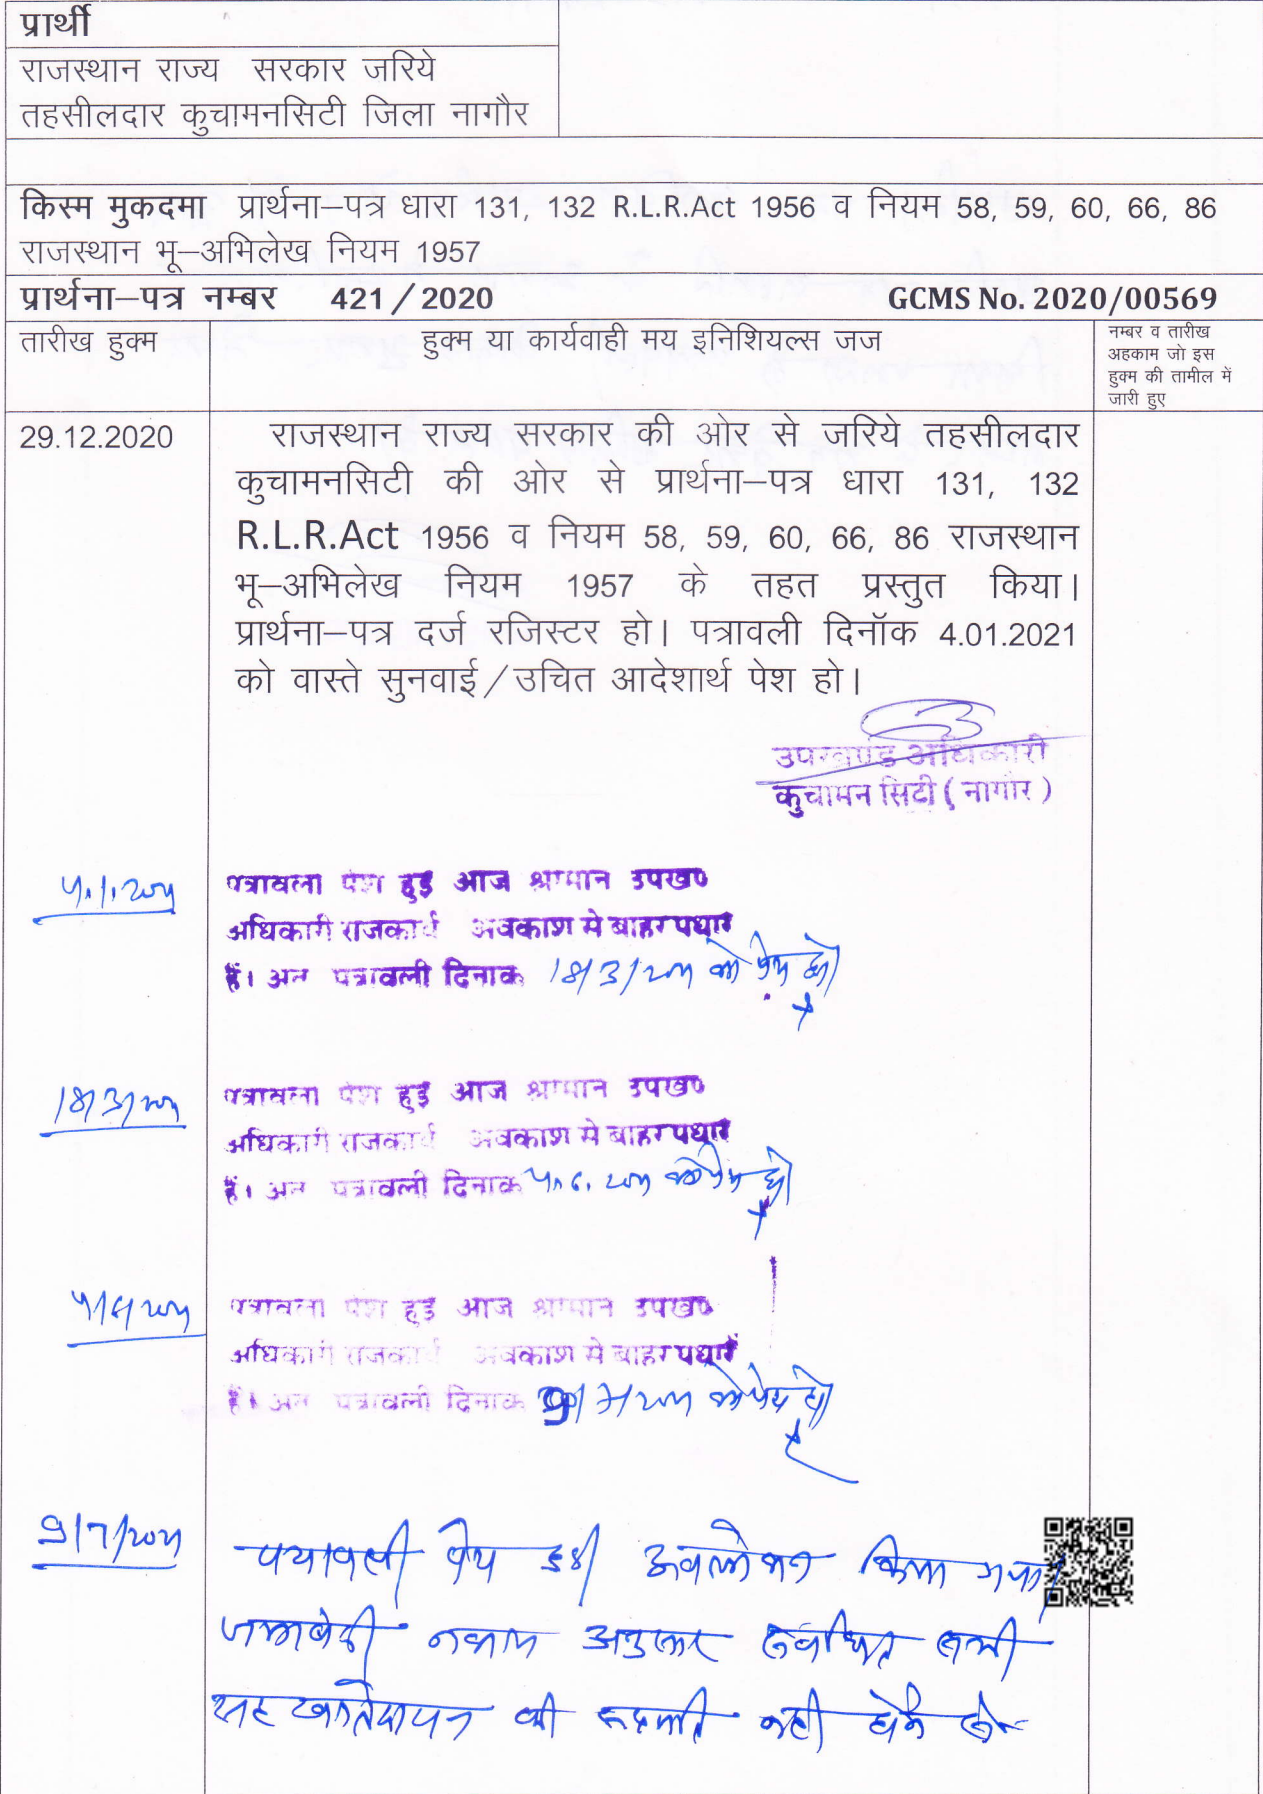 प्रार्थी
राजस्थान राज्य सरकार जरिये
तहसीलदार कुचामनसिटी जिला नागौर
किस्म मुकदमा प्रार्थना–पत्र धारा 131, 132 R.L.R.Act 1956 व नियम 58, 59, 60, 66, 86
राजस्थान भू–अभिलेख नियम 1957
प्रार्थना–पत्र नम्बर 421/2020 GCMS No. 2020/00569
तारीख हुक्म
हुक्म या कार्यवाही मय इनिशियल्स जज
नम्बर व तारीख
अहकाम जो इस
हुक्म की तामील में
जारी हुए
29.12.2020
राजस्थान राज्य सरकार की ओर से जरिये तहसीलदार
कुचामनसिटी की ओर से प्रार्थना–पत्र धारा 131, 132
R.L.R.Act 1956 व नियम 58, 59, 60, 66, 86 राजस्थान
भू–अभिलेख नियम 1957 के तहत प्रस्तुत किया।
प्रार्थना–पत्र दर्ज रजिस्टर हो। पत्रावली दिनॉक 4.01.2021
को वास्ते सुनवाई/उचित आदेशार्थ पेश हो।
उपखण्ड अधिकारी
कुचामन सिटी (नागौर)
पत्रावली पेश हुई आज श्रीमान उपखण्ड
अधिकारी राजकार्य अवकाश मे बाहर पधारे
हैं। अत पत्रावली दिनांक 18/3/2021 को पेश हो
18/3/2021
पत्रावली पेश हुई आज श्रीमान उपखण्ड
अधिकारी राजकार्य अवकाश मे बाहर पधारे
हैं। अत पत्रावली दिनांक को पेश हो
पत्रावली पेश हुई आज श्रीमान उपखण्ड
अधिकारी राजकार्य अवकाश मे बाहर पधारे
हैं। अत पत्रावली दिनांक को पेश हो
9/7/2021
पत्रावली पेश हुई। अवलोकन किया गया।
जमाबंदी नकल अनुसार संबंधित सभी
सह खातेदारान की सहमति नही होने से